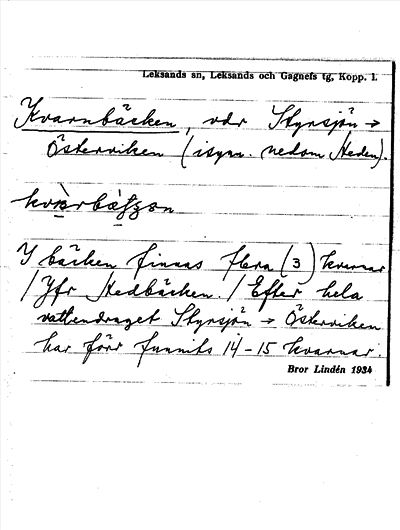 Leksands sn, Leksands och Gagnefs tg, Kopp. l.
Kvarnbäcken, vdr Styrsjön →
Österviken (isynn. nedom Heden).
I bäcken finnas flera (3) kvarnar
/ Jfr Hedbäcken. / Efter hela
vattendraget Styrsjön → Österviken
har förr funnits 14-15 kvarnar.
Bror Lindén 1934